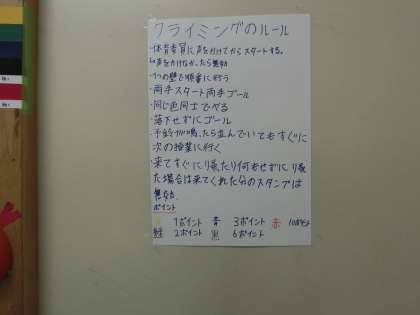 クライミングのルール
・体育委員に声をかけてからスタートする。
↳声をかけなか、たら無効
・1つの壁で順番に行う
・両手スタート両手ゴール
・同じ色同士でやる
・落下せずにゴール
・予鈴が鳴、たら並んでいてもすぐに
次の授業に行く
・来てすぐに帰、たり何もせずに帰、
た場合は来てくれた分のスタンプは
無効。
ポイント
1ポイント 青 3ポイント 赤 10ポイント
緑 2ポイント 黒 6ポイント